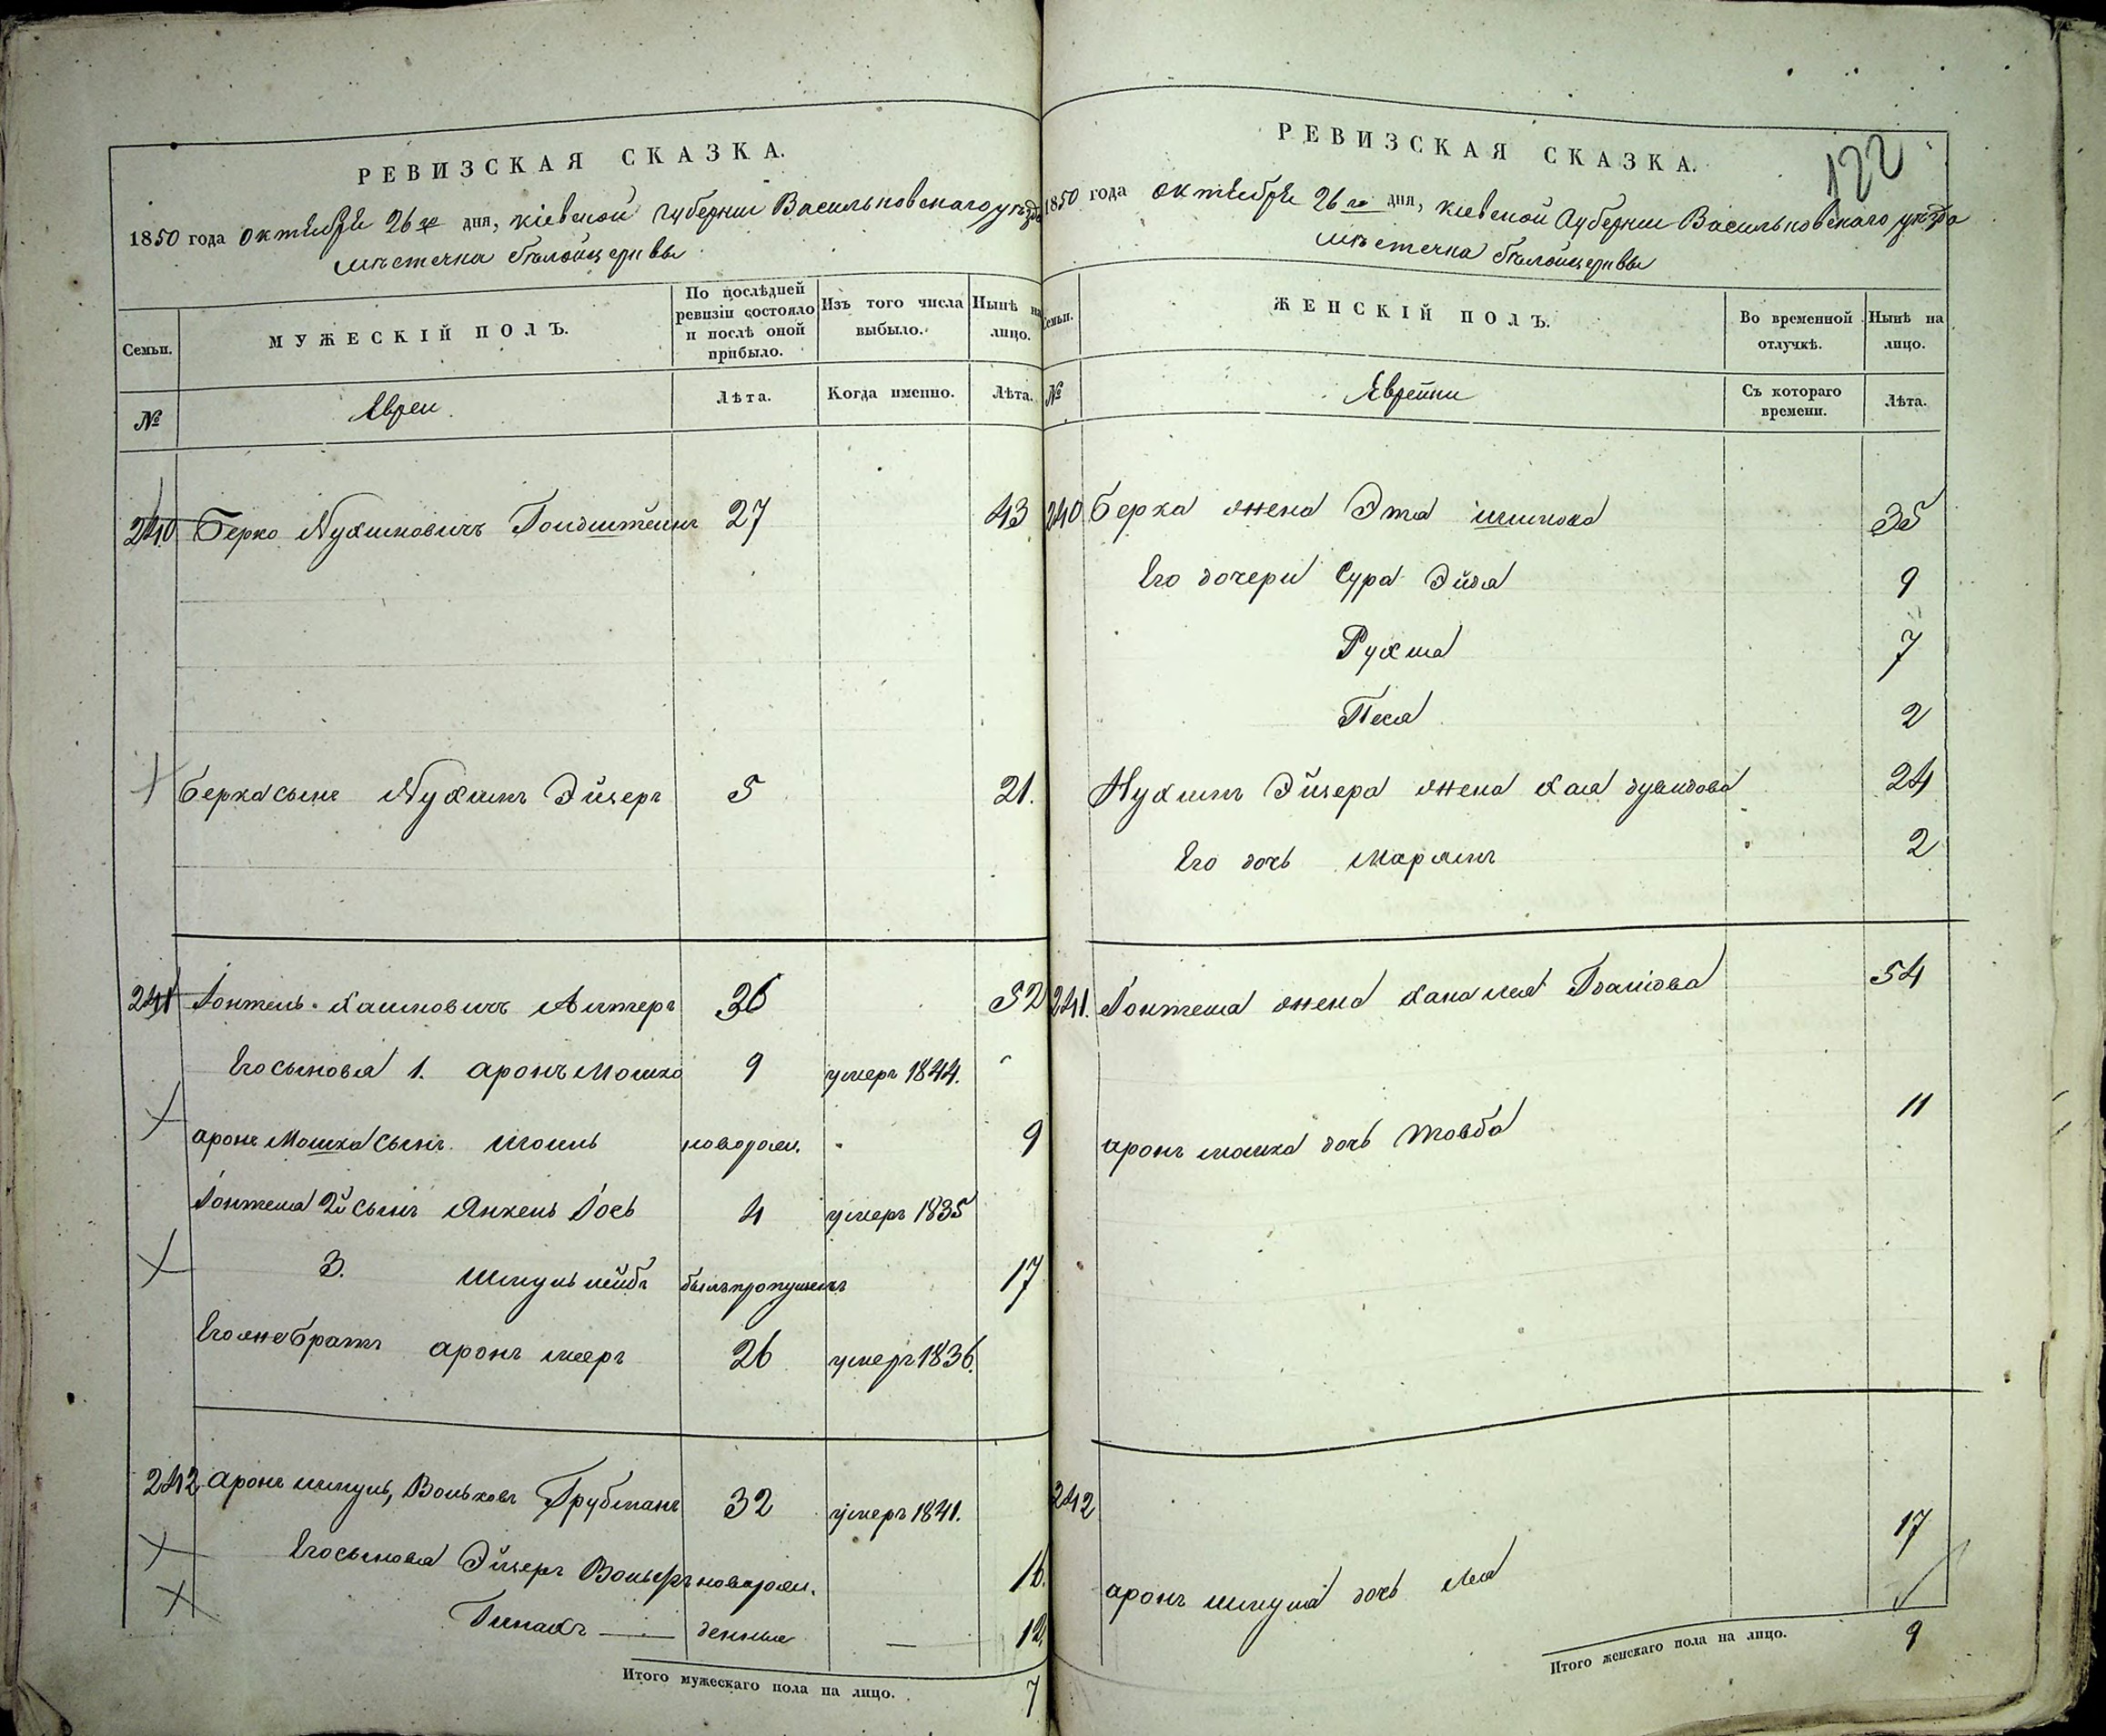 РЕВИЗСКАЯ СКАЗКА.
1850 года октября 26го дня, Кіевской губерніи Васильковскаго уѣзда
мѣстечка Бѣлойцеркви
Семьи. МУЖЕСКІЙ ПОЛЪ. По послѣдней ревизіи состояло и послѣ оной прибыло. Изъ того числа выбыло. Нынѣ на лицо.
№ Евреи. Лѣта. Когда именно. Лѣта.
240 Берко Нухимовичъ Голдштейнъ 27 43
Берка сынъ Нухимъ Эйзеръ 5 21.
241 Хаимовичъ Алтеръ 36 52
Его сыновья 1. аронъ Мошко 9 умеръ 1844.
аронъ Мошка сынъ новорож. 9
2й сынъ Янкель 4 умеръ 1835
3. Шмуль лейбъ былъ пропущенъ 17
Его же братъ аронъ мееръ 26 умеръ 1836.
242 аронъ шмуль, Вольковъ Трубманъ 32 умеръ 1841.
Его сыновья Эйзеръ новорож. 16.
Пинахъ — денные — 12.
Итого мужескаго пола на лицо. 7
122
РЕВИЗСКАЯ СКАЗКА.
1850 года октября 26го дня, Кіевской Губерніи Васильковскаго уѣзда
мѣстечка Бѣлойцеркви
Семьи. ЖЕНСКІЙ ПОЛЪ. Во временной отлучкѣ. Нынѣ на лицо.
№ Еврейки Съ котораго времени. Лѣта.
240 Берка жена Эта 35
Его дочери Сура Эйдя 9
Рухля 7
Песя 2
Нухимъ Эйзера жена Хая дувидова 24
Его дочь Марямъ 2
241. жена Хана лея 54
аронъ мошка дочь Товба 11
242
аронъ шмуля дочь Лея 17
Итого женскаго пола на лицо. 9